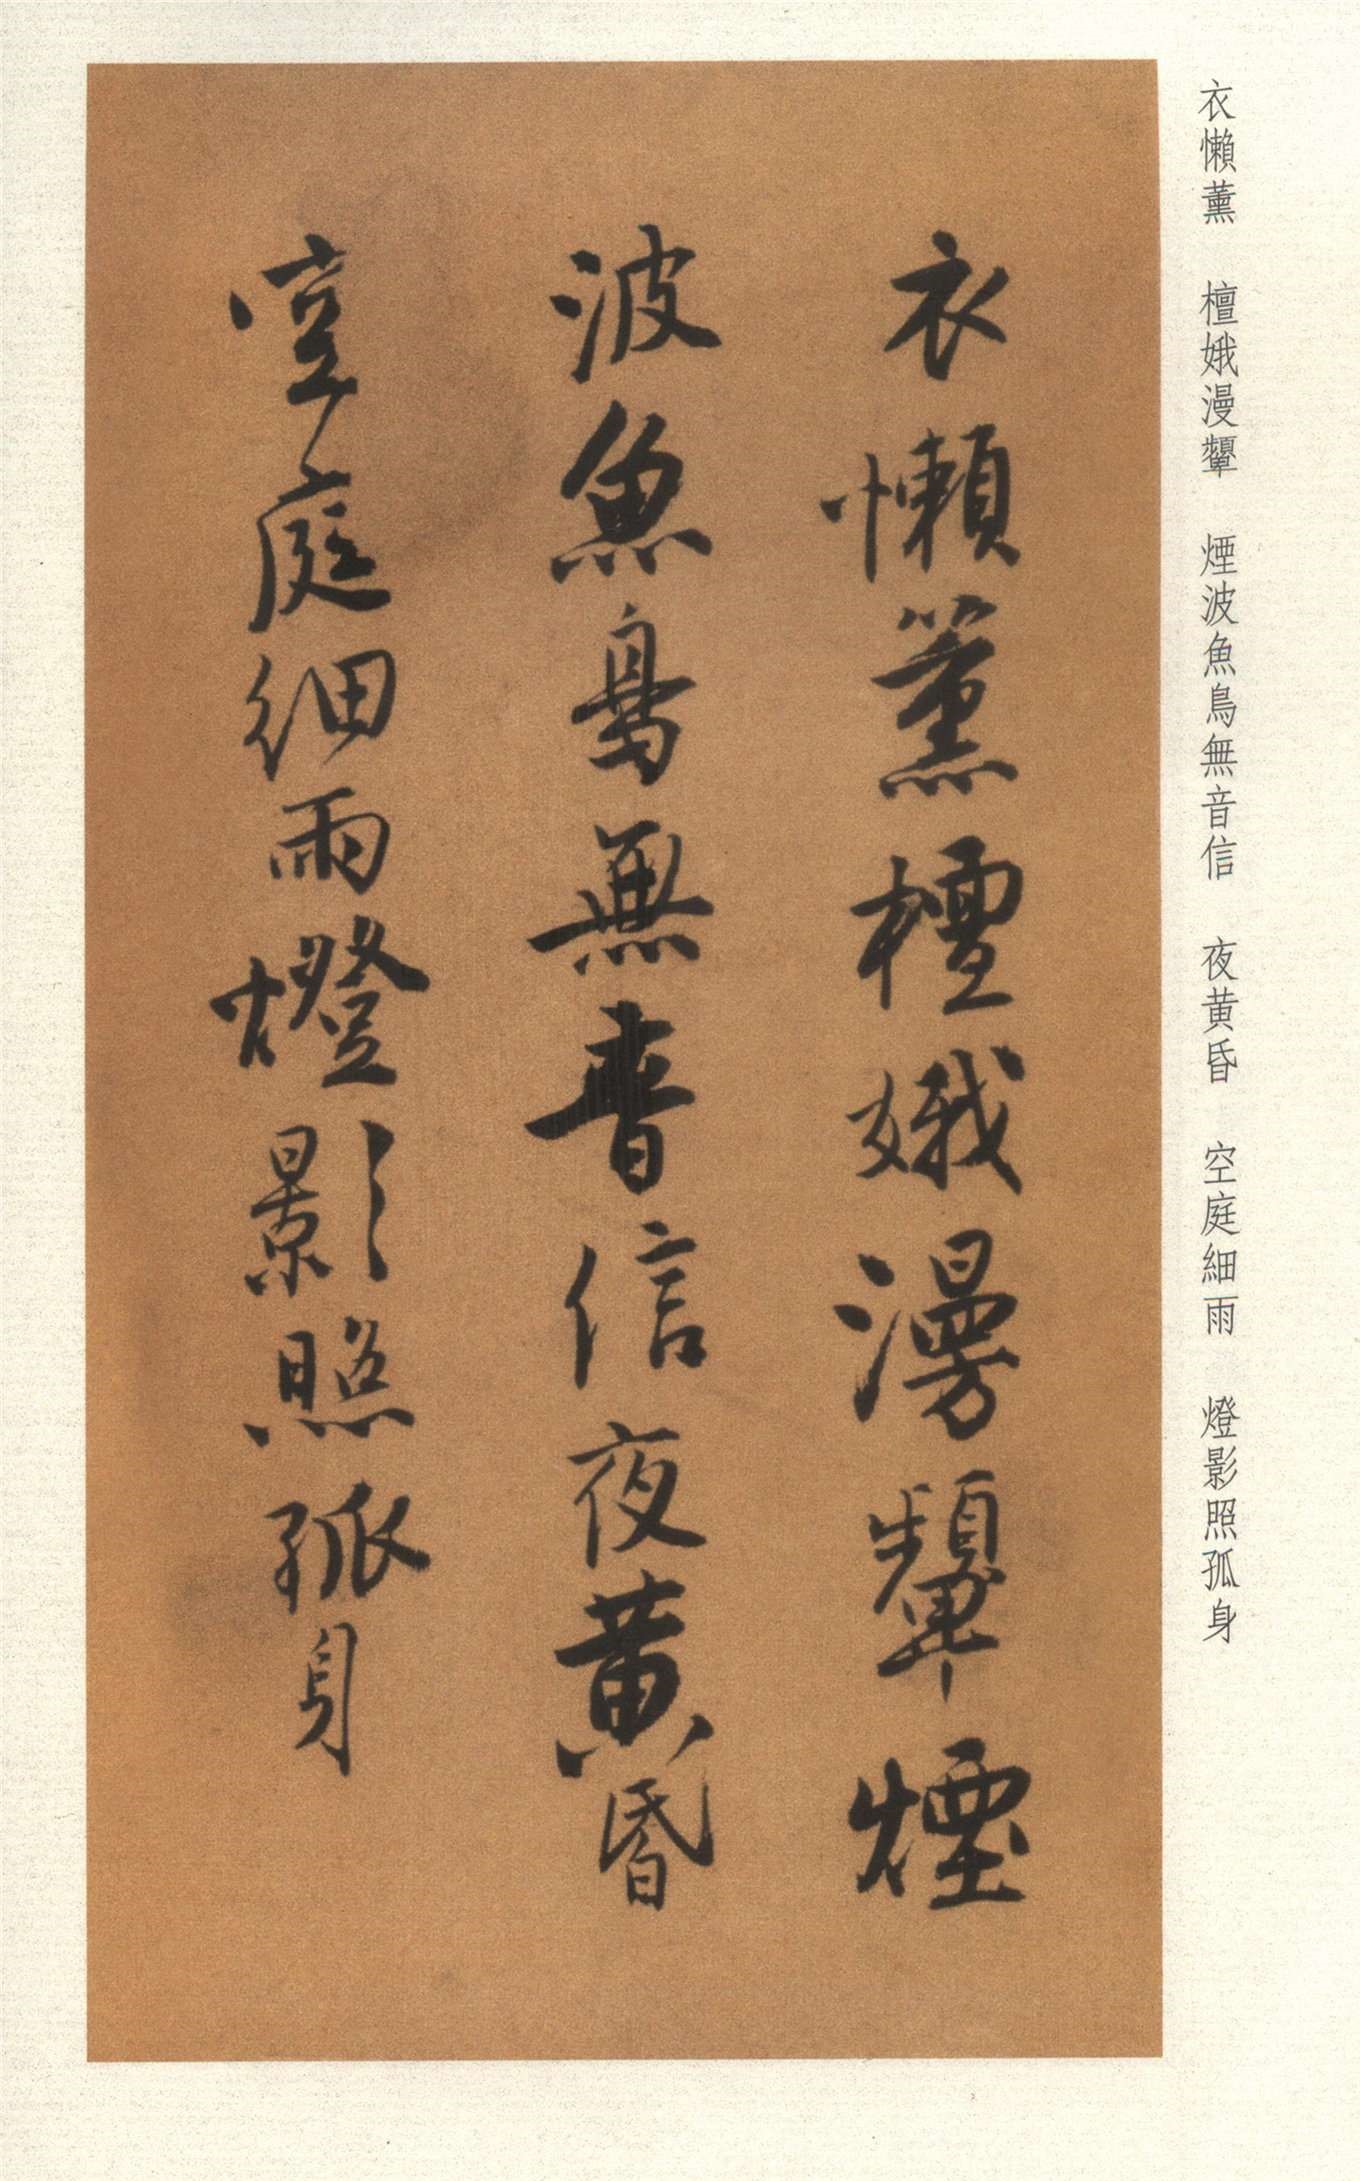 衣懶薰 檀娥漫顰 煙波魚鳥無音信 夜黄昏 空庭細雨 燈影照孤身
衣懶薰檀娥漫顰煙
波魚鳥無音信夜黄昏
空庭細雨燈影照孤身